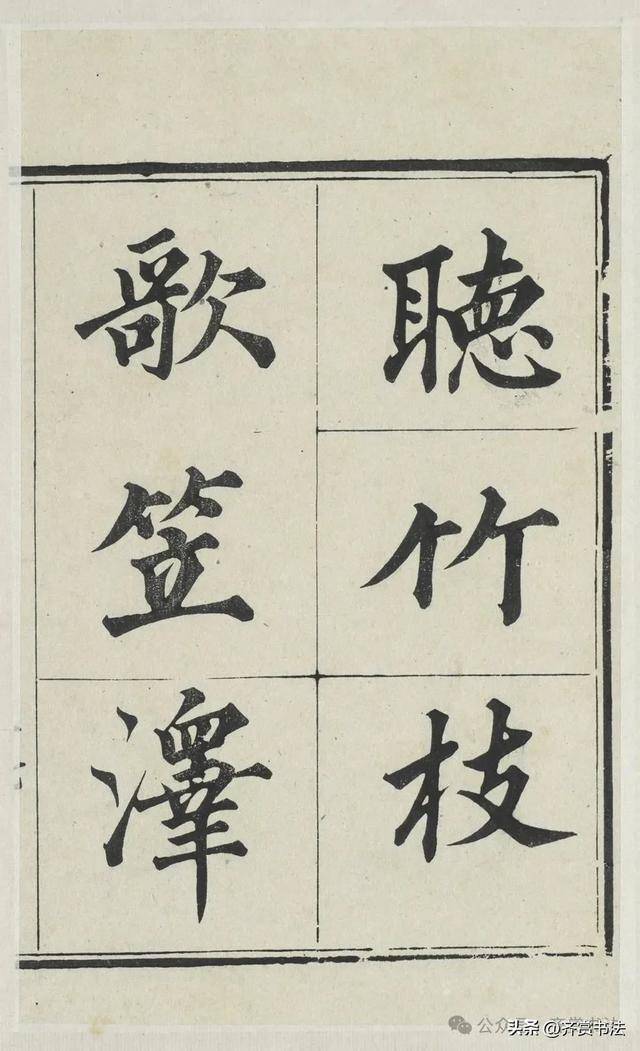 聴竹枝
歌笠澤
头条 @齐赏书法